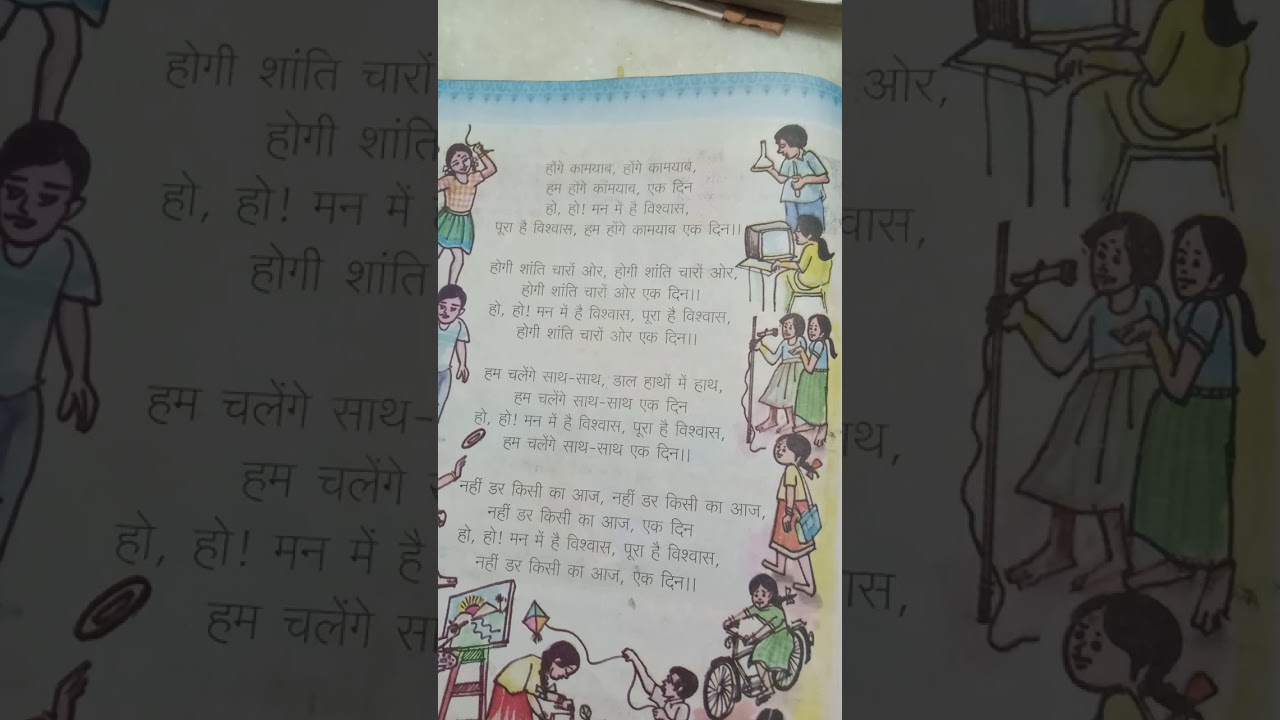 होंगे कामयाब, होंगे कामयाब,
हम होंगे कामयाब, एक दिन
हो, हो! मन में है विश्वास,
पूरा है विश्वास, हम होंगे कामयाब एक दिन।।
होगी शांति चारों ओर, होगी शांति चारों ओर,
होगी शांति चारों ओर एक दिन।।
हो, हो! मन में है विश्वास, पूरा है विश्वास,
होगी शांति चारों ओर एक दिन।।
हम चलेंगे साथ-साथ, डाल हाथों में हाथ,
हम चलेंगे साथ-साथ एक दिन
हो, हो! मन में है विश्वास, पूरा है विश्वास,
हम चलेंगे साथ-साथ एक दिन।।
नहीं डर किसी का आज, नहीं डर किसी का आज,
नहीं डर किसी का आज, एक दिन
हो, हो! मन में है विश्वास, पूरा है विश्वास,
नहीं डर किसी का आज, एक दिन।।